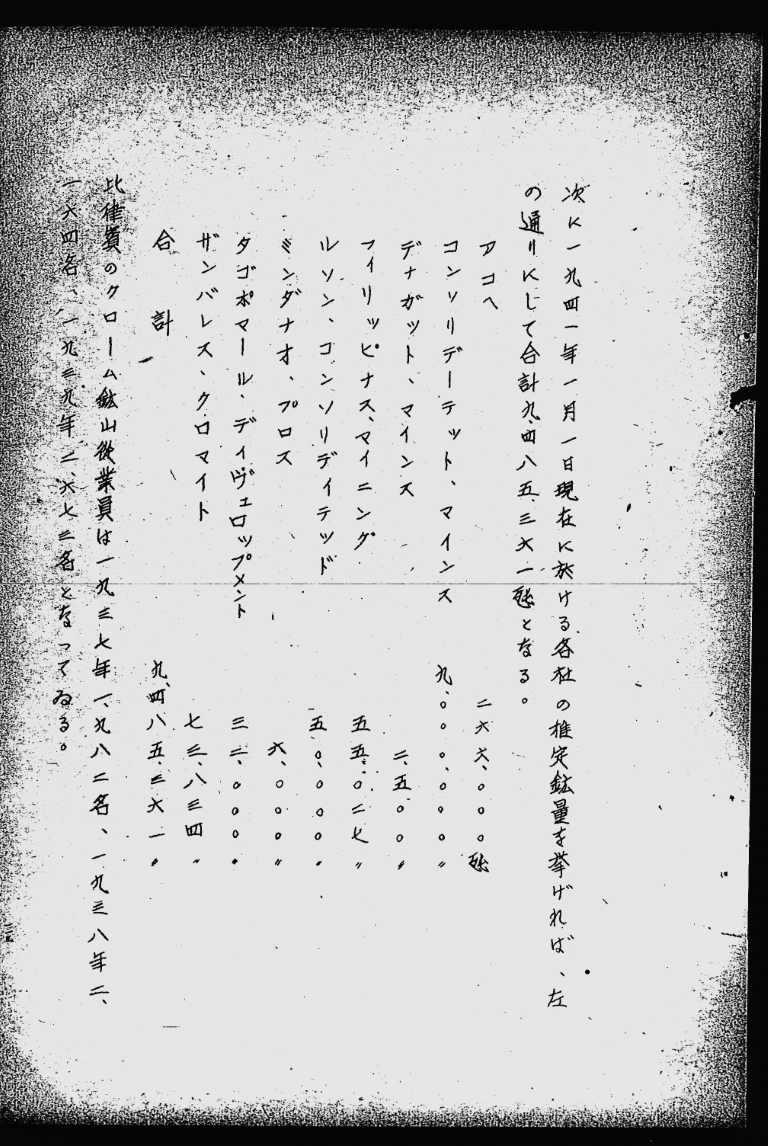 次に一九四一年一月一日現在に於ける各社の推定鉱量を挙げれば、左
の通りにして合計九、四八五、三六一瓲となる。
アコヘ 二六六、〇〇〇瓲
コンソリデーテット、マインス 九、〇〇〇、〇〇〇〃
デナガット、マインス 二、五〇〇〃
フィリッピナス、マイニング 五五、〇二七〃
ルソン、コンソリデイテッド 五〇、〇〇〇〃
ミンダナオ、プロス 六、〇〇〇〃
タゴボマール、ディヴェロップメント 三二、〇〇〇〃
ザンバレス、クロマイト 七三、八三四〃
合計 九、四八五、三六一〃
比律賓のクローム鉱山従業員は一九三七年一、九八二名、一九三八年二、
一六四名、一九三九年二、六七三名となってゐる。